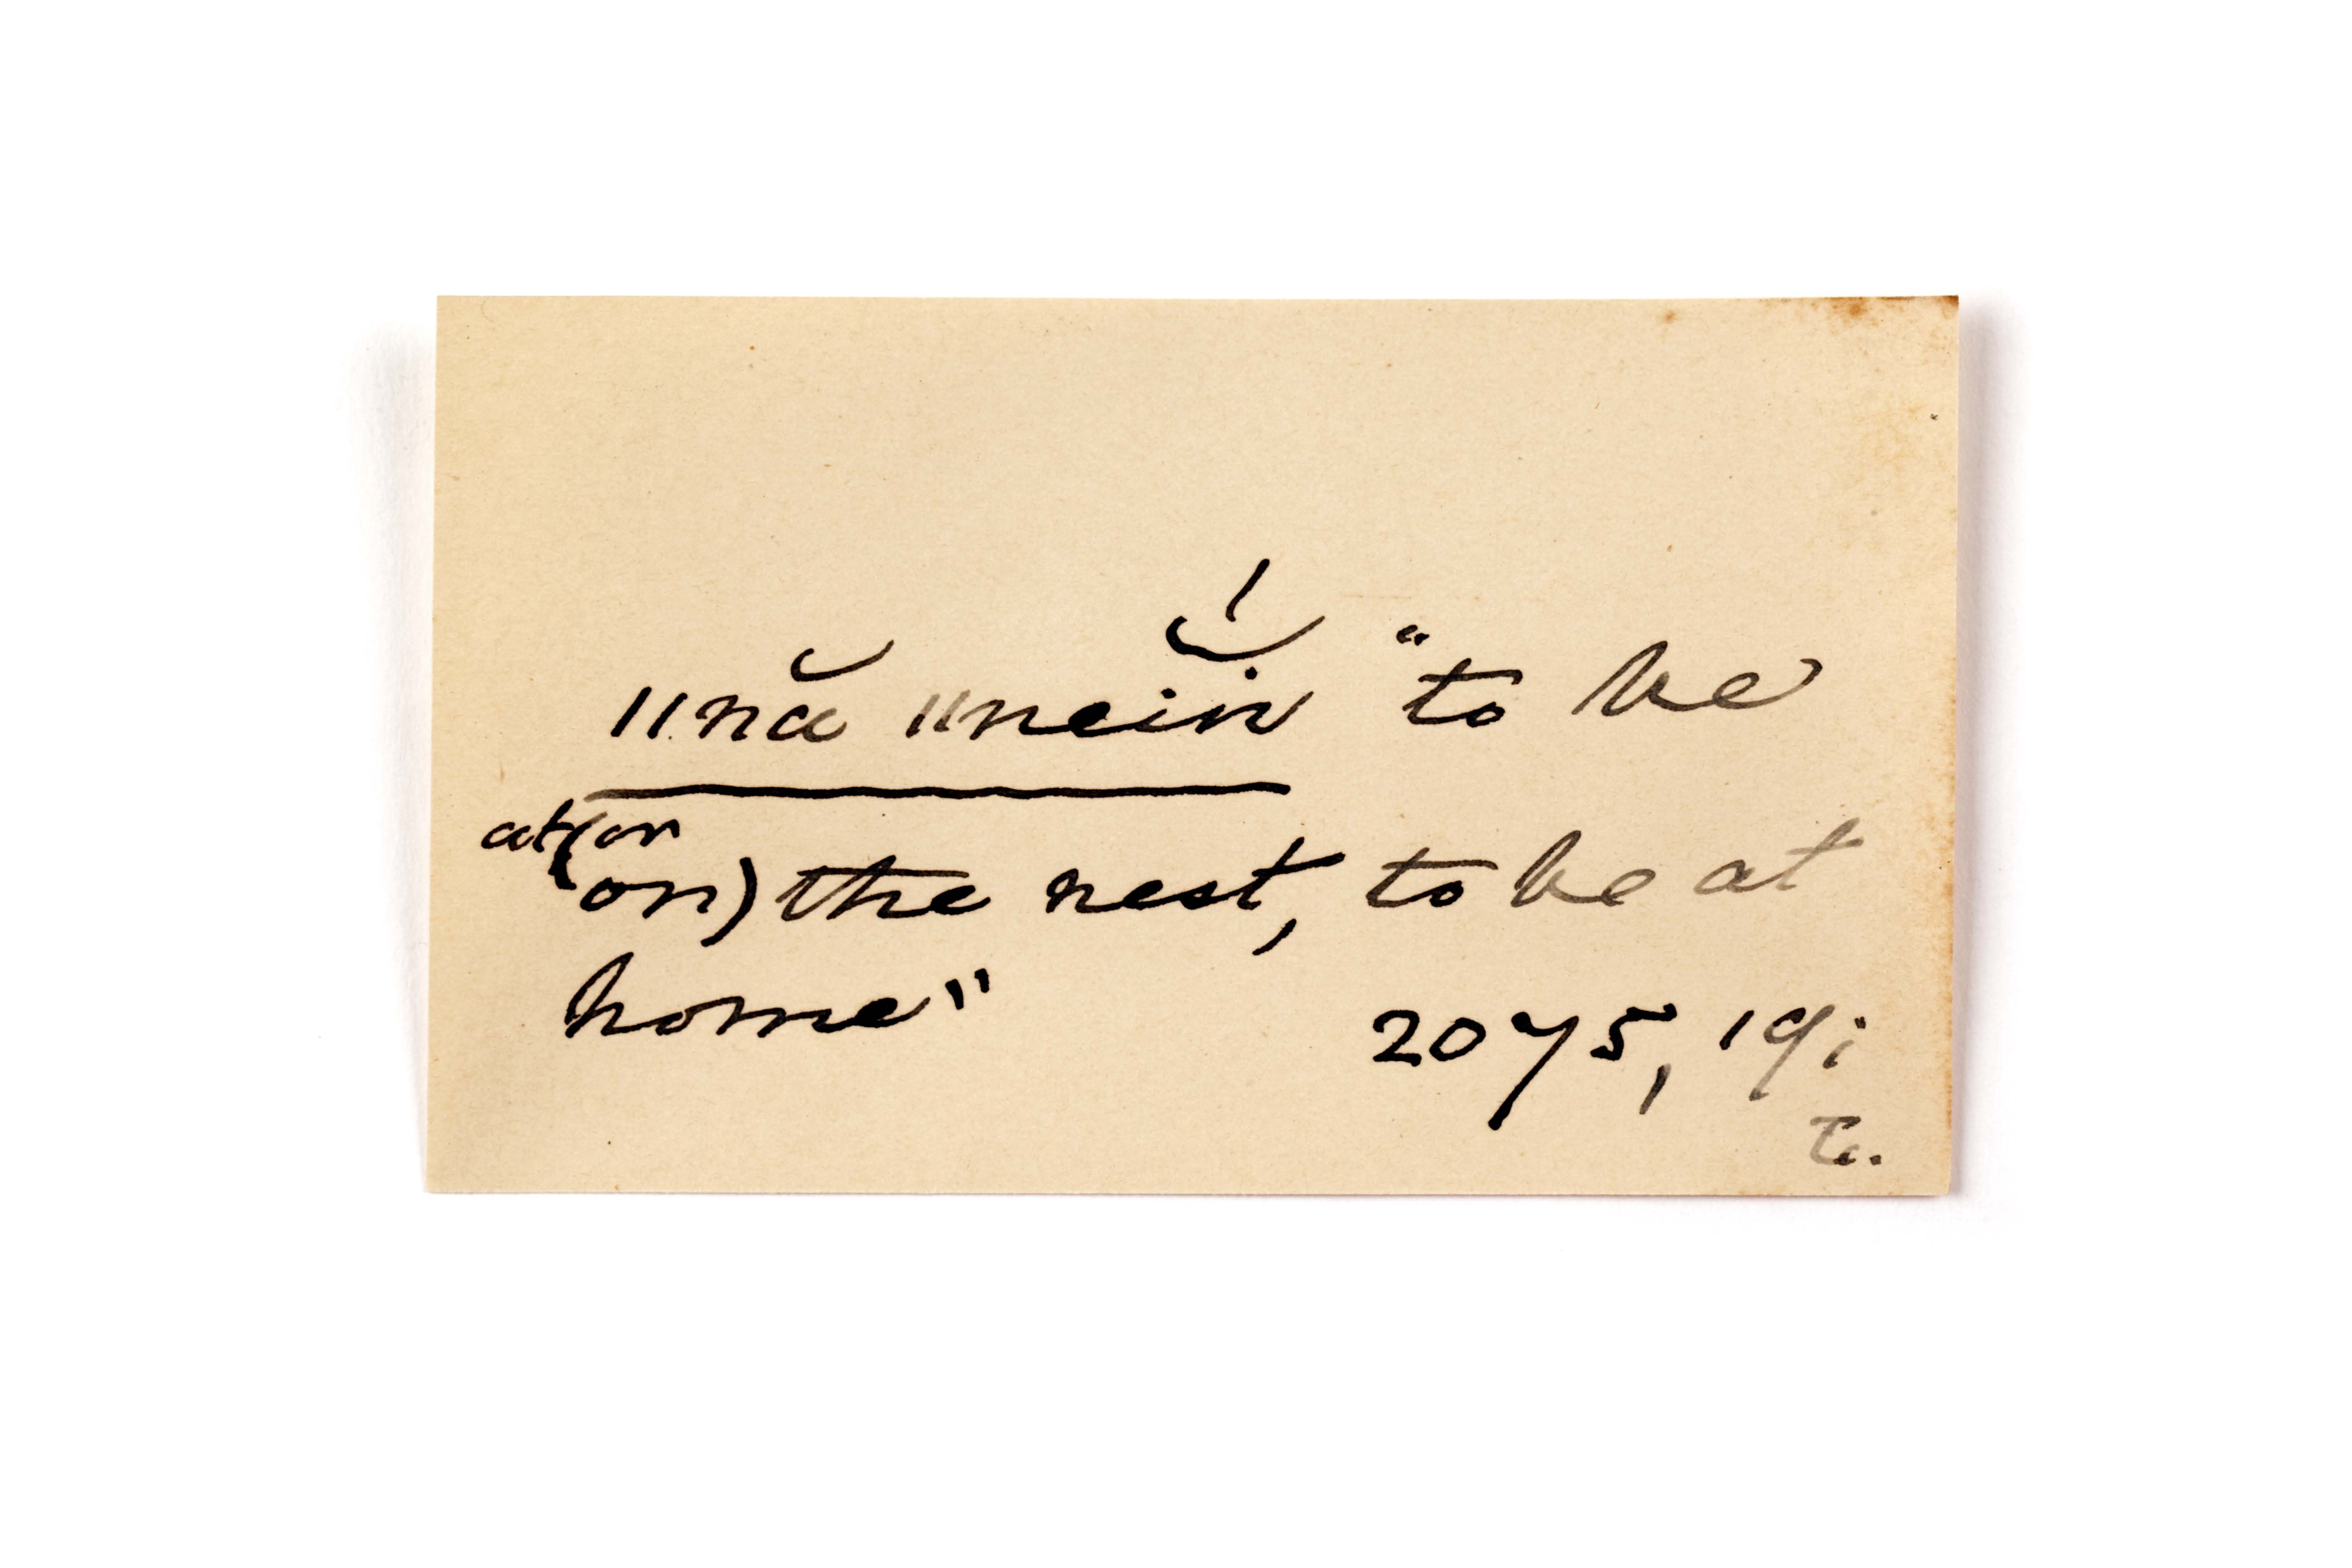 ǁnă ǁneĭń "to be
at (or
on) the nest, to be at
home"
2075, 19;
T.